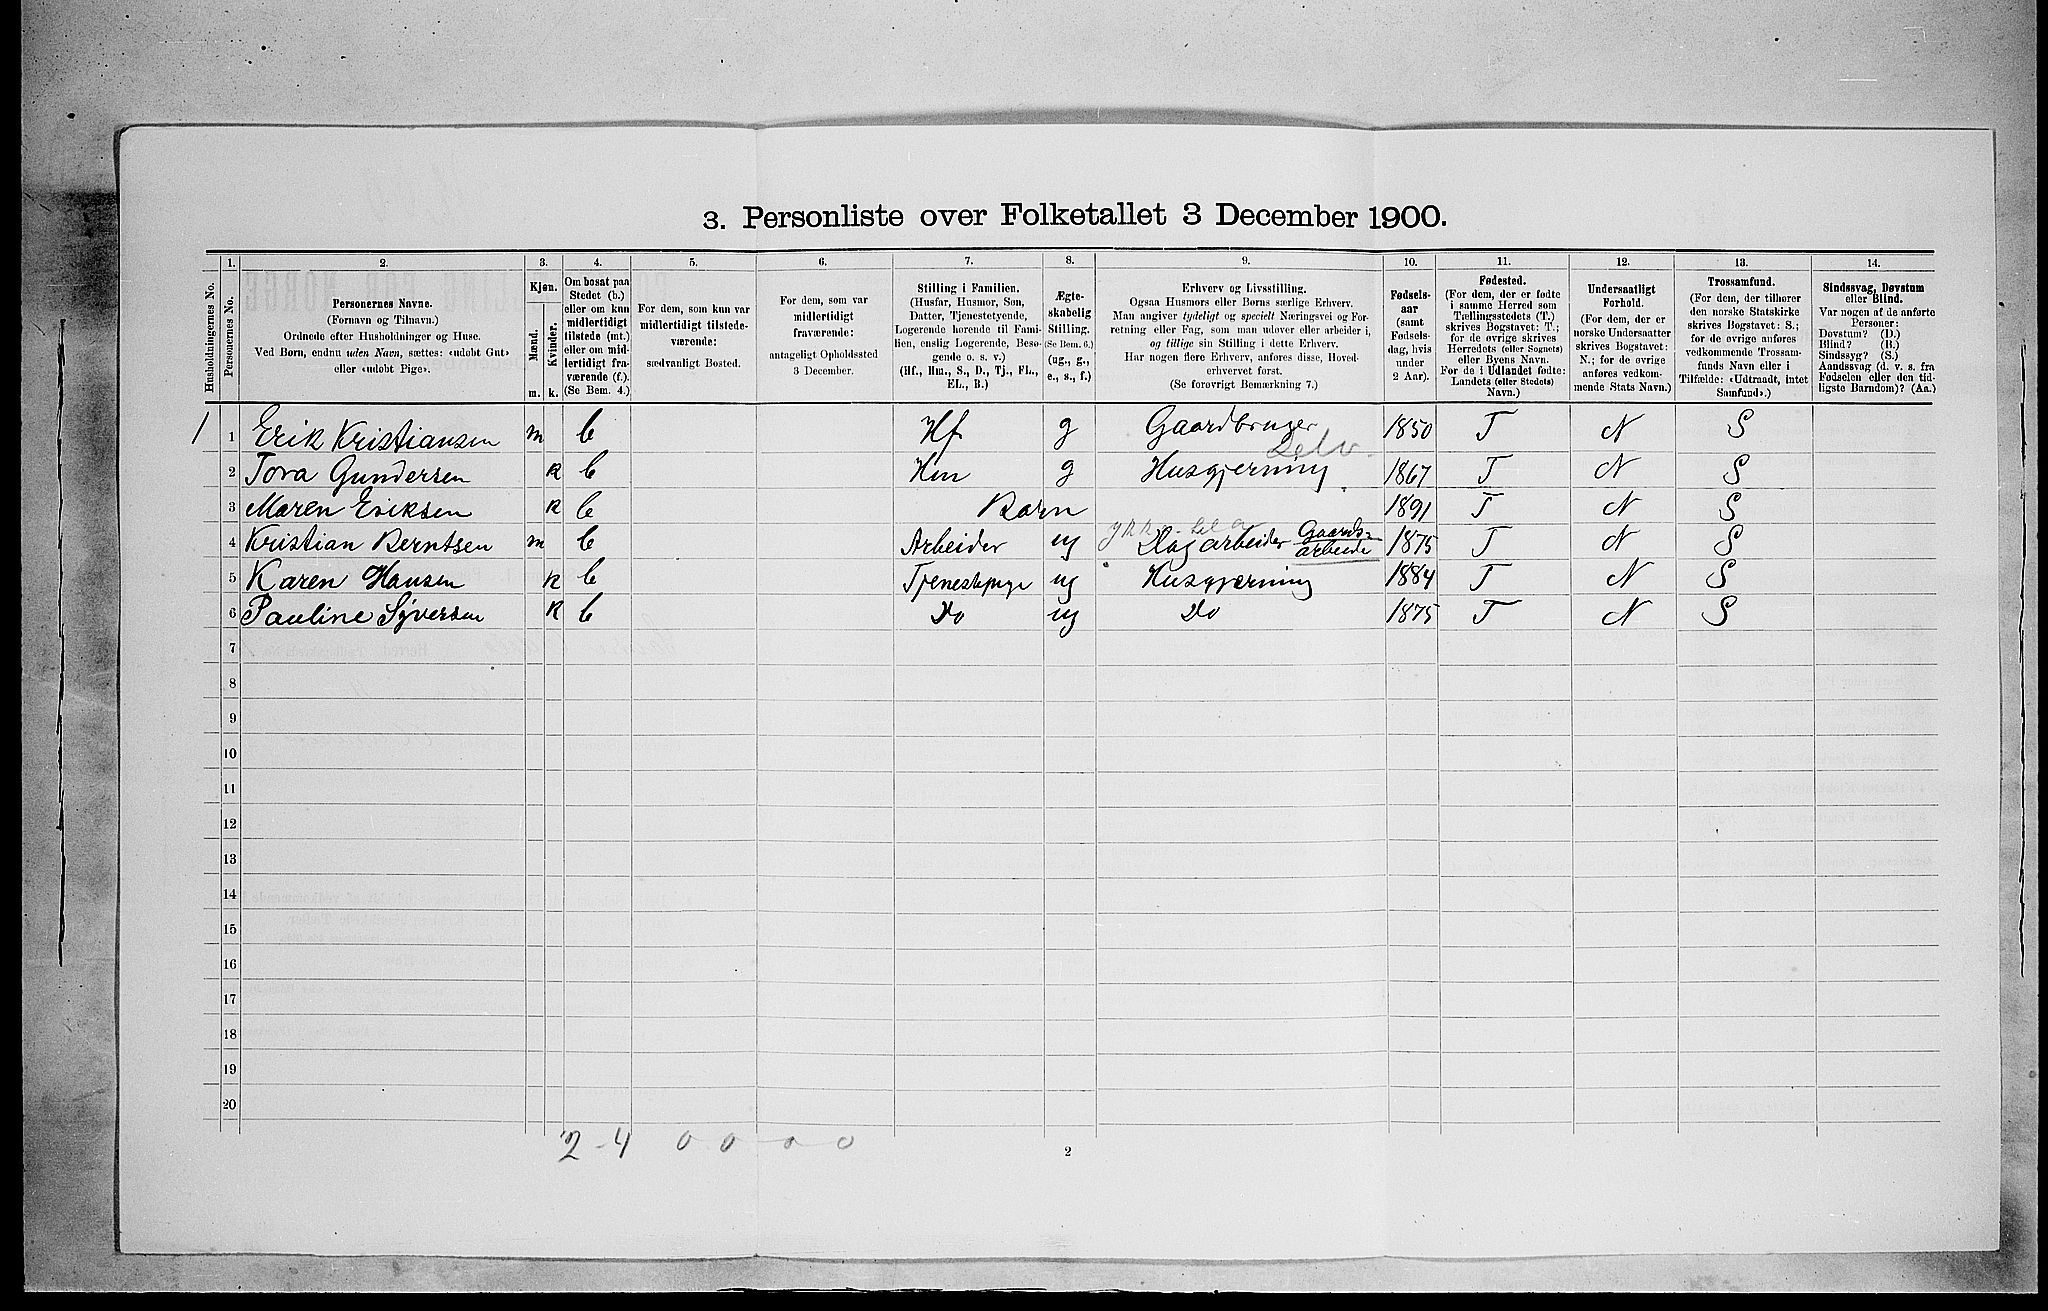 3. Personliste over Folketallet 3 December 1900.
1. 2. 3. 4. 5. 6. 7. 8. 9. 10. 11. 12. 13. 14.
Husholdningernes No.
Personernes No.
Personernes Navne.
(Fornavn og Tilnavn.)
Ordnede efter Husholdninger og Huse.
Ved Børn, endnu uden Navn, sættes: «udøbt Gut»
eller «udøbt Pige».
Kjøn.
Mænd.
Kvinder.
m. k.
Om bosat paa
Stedet (b.)
eller om kun
midlertidigt
tilstede (mt.)
eller om mid-
lertidigt fra-
værende (f.).
(Se Bem. 4.)
For dem, som kun var
midlertidigt tilstede-
værende:
sædvanligt Bosted.
For dem, som var
midlertidigt
fraværende:
antageligt Opholdssted
3 December.
Stilling i Familien.
(Husfar, Husmor, Søn,
Datter, Tjenestetyende,
Logerende hørende til Fami-
lien, enslig Logerende, Besø-
gende o. s. v.)
(Hf., Hm., S., D., Tj., FL.,
EL., B.)
Ægte-
skabelig
Stilling.
(Se Bem. 6.)
(ug., g.,
e., s., f.)
Erhverv og Livsstilling.
Ogsaa Husmors eller Børns særlige Erhverv.
Man angiver tydeligt og specielt Næringsvei og For-
retning eller Fag, som man udøver eller arbeider i,
og tillige sin Stilling i dette Erhverv.
Har nogen flere Erhverv, anføres disse, Hoved-
erhvervet først.
(Se forøvrigt Bemærkning 7.)
Fødsels-
aar
(samt
Fødsels-
dag, hvis
under
2 Aar).
Fødested.
(For dem, der er fødte
i samme Herred som
Tællingsstedets (T.)
skrives Bogstavet: T.;
for de øvrige skrives
Herredets (eller Sognets)
eller Byens Navn.
For de i Udlandet fødte:
Landets (eller Stedets)
Navn.)
Undersaatligt
Forhold.
(For dem, der er
norske Undersaatter
skrives Bogstavet:
N.; for de øvrige
anføres vedkom-
mende Stats Navn.)
Trossamfund.
(For dem, der tilhører
den norske Statskirke
skrives Bogstavet: S.;
for de øvrige anføres
vedkommende Trossam-
funds Navn eller i
Tilfælde: «Udtraadt, intet
Samfund».)
Sindssvag, Døvstum
eller Blind.
Var nogen af de anførte
Personer:
Døvstum? (D.)
Blind? (B.)
Sindssyg? (S.)
Aandssvag (d. v. s. fra
Fødselen eller den tid-
ligste Barndom)? (Aa.)
1 1 Erik Kristiansen m b Hf g Gaardbruger Selv 1850 T N S
2 Tora Gundersen k b Hm g Husgjerning 1867 T N S
3 Maren Eriksen k b Barn 1891 T N S
4 Kristian Berntsen m b Arbeider ug Dagarbeider Gaards-arbeide 1875 T N S
5 Karen Hansen k b Tjenestpige ug Husgjerning 1884 T N S
6 Pauline Syversen k b Do ug Do 1875 T N S
7
8
9
10
11
12
13
14
15
16
17
18
19
20
2-4 0 0 0 0
2